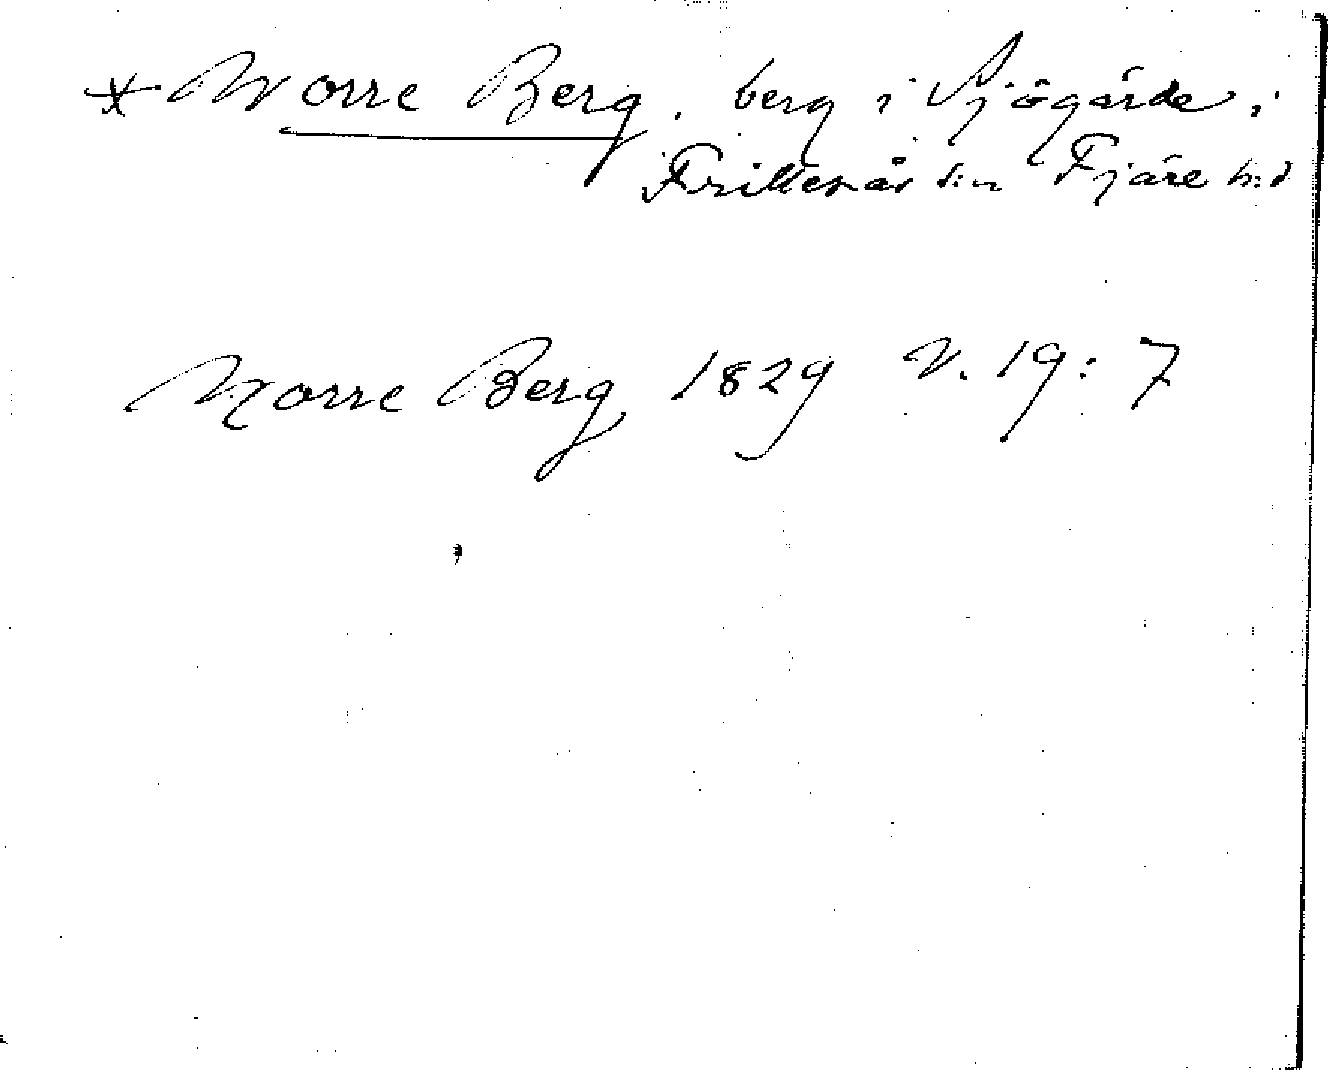 * Norre Berg, berg i Sjögärde i
Frillesås s:n Fjäre h:d
Norre Berg 1829 V. 19:7